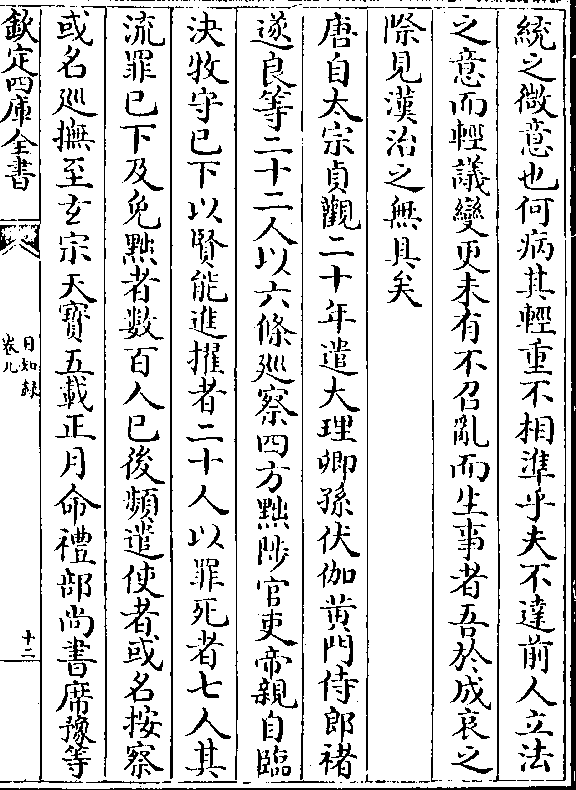 統之微意也何病其輕重不相準乎夫不達前人立法
之意而輕議變更未有不召亂而生事者吾於成哀之
際見漢治之無具矣
唐自太宗貞觀二十年遣大理卿孫伏伽黃門侍郎褚
遂良等二十二人以六條廵察四方黜陟官吏帝親自臨
決牧守已下以賢能進擢者二十人以罪死者七人其
流罪已下及免黜者數百人已後頻遣使者或名按察
或名廵撫至玄宗天寳五載正月命禮部尚書席豫等
欽定四庫全書
日知録
卷九
十二